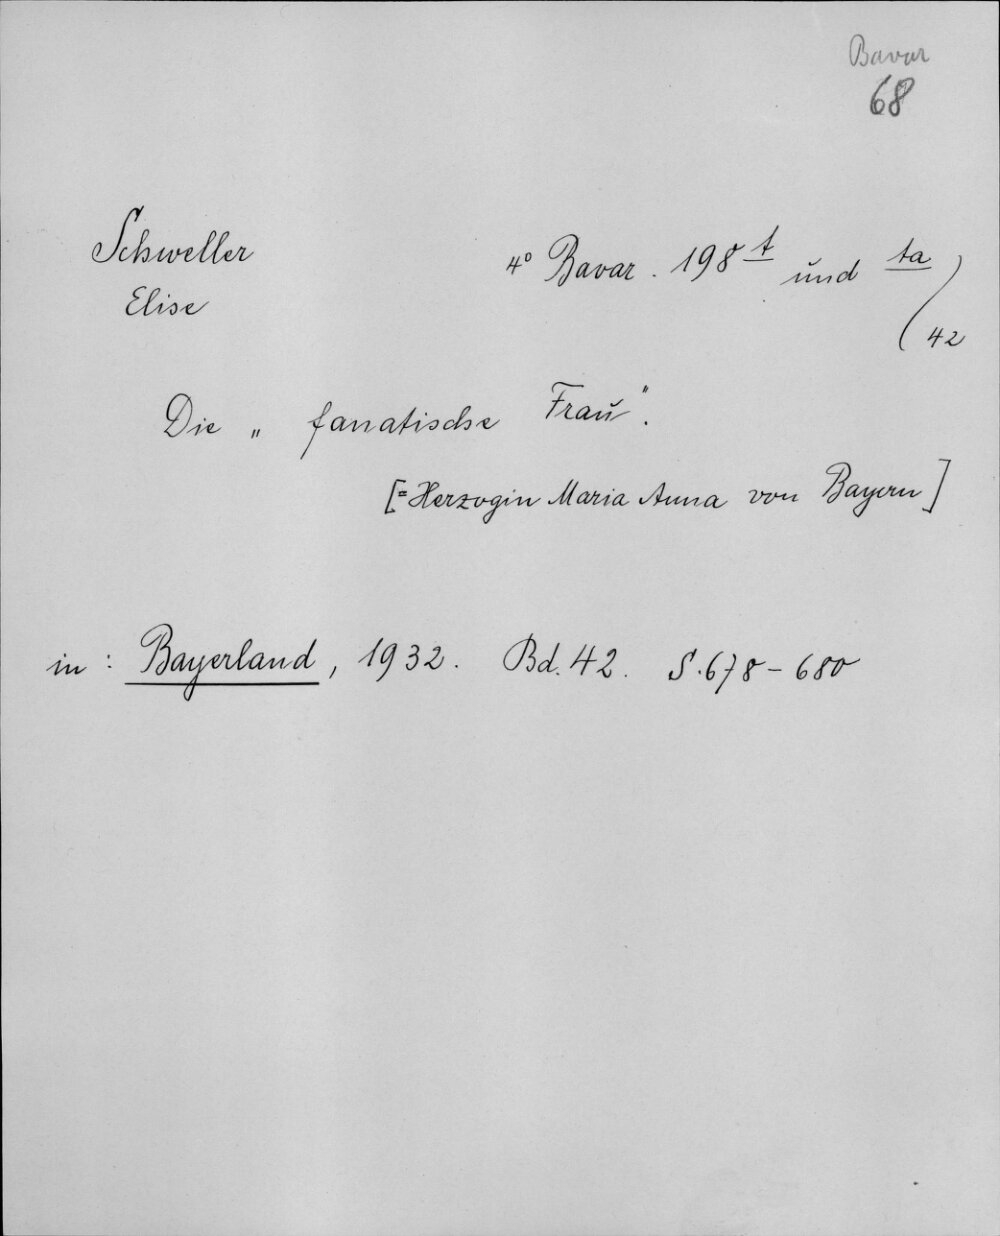 Bavar
68
Schweller
Elise
4° Bavar. 198 t und ta
(42
Die „fanatische Frau".
[= Herzogin Maria Anna von Bayern]
in: Bayerland, 1932. Bd. 42. S. 678-680